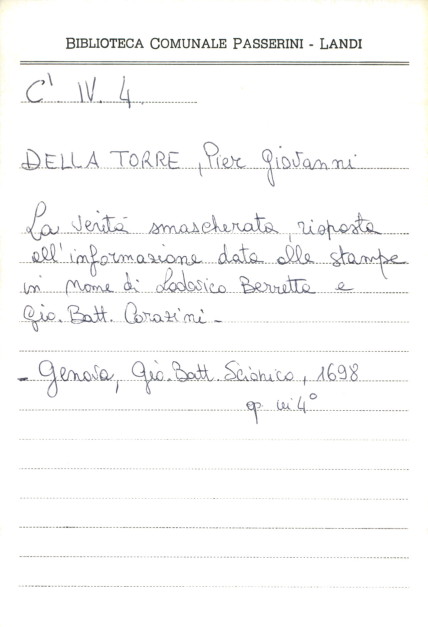 BIBLIOTECA COMUNALE PASSERINI - LANDI
C' IV. 4
DELLA TORRE, Pier Giovanni
La verità smascherata, risposta
all'informazione data alle stampe
in nome di Lodovico Berretta e
Gio. Batt. Corazini -
- Genova, Gio. Batt. Scionico, 1698
op. in 4°